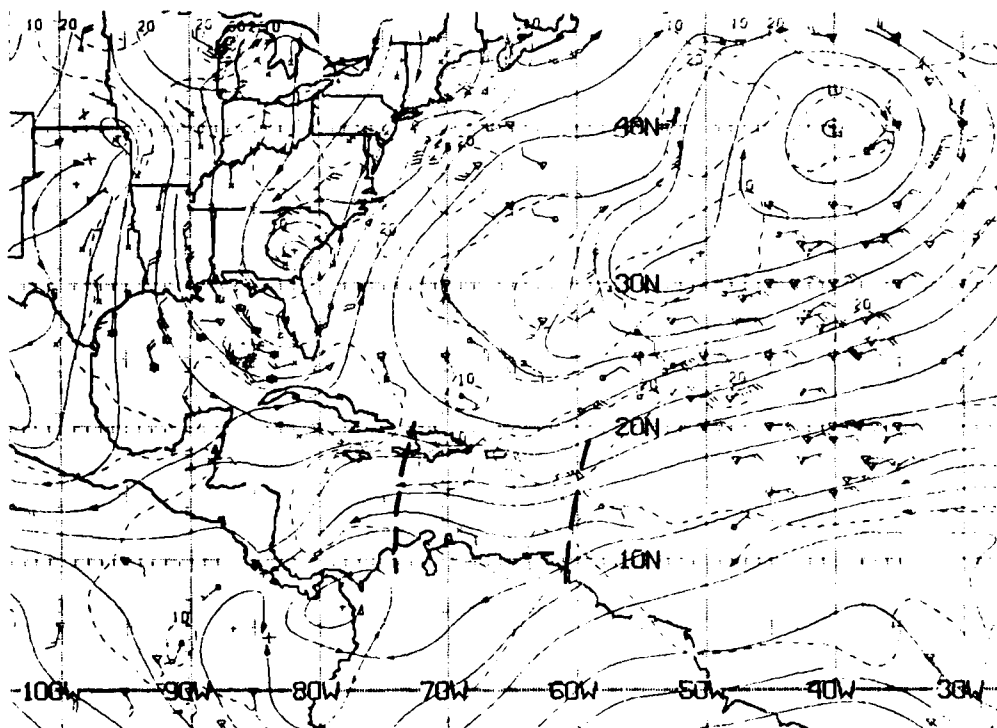 10 20 20 20 10 15 20
20
40N
20
20
30N
20
10 20 20
20N
10N
10
100W 90W 80W 70W 60W 50W 40W 30W